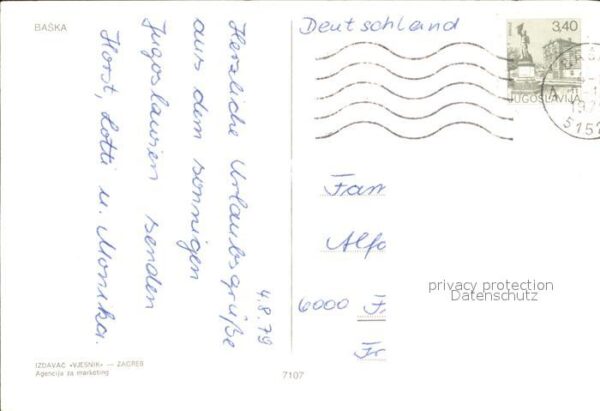 BAŠKA
4.8.79
Herzliche Urlaubsgrüße
aus dem sonnigen
Jugoslawien senden
Horst, Lotti u. Monika.
IZDAVAČ «VJESNIK» — ZAGREB
Agencija za marketing
7107
Deutschland
3,40
JUGOSLAVIJA
Fam
Alfo
6000 F
Fr
privacy protection
Datenschutz